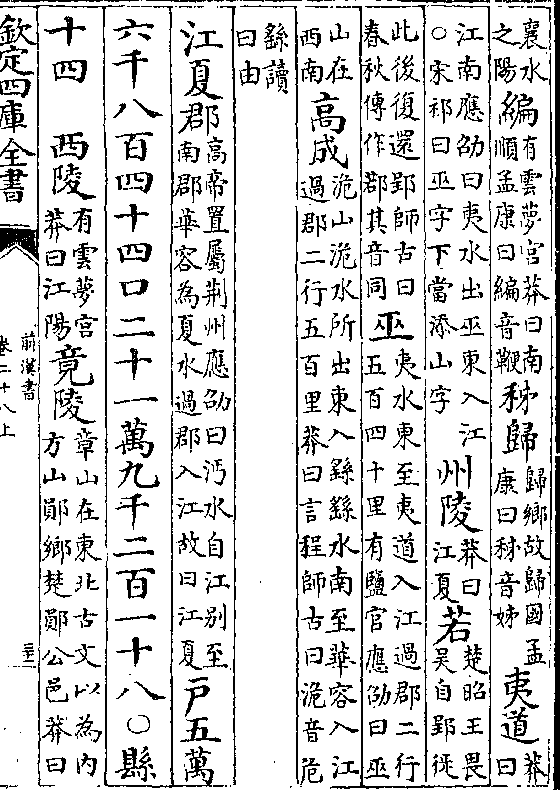 襄水之陽編有雲夢宮莽曰南順孟康曰編音鞭秭歸歸鄉故歸國孟康曰秭音姊夷道莽曰
江南應劭曰夷水出巫東入江○宋祁曰巫字下當添山字州陵莽曰江夏若楚昭王畏吳自郢徙
此後復還郢師古曰春秋傳作鄀其音同巫夷水東至夷道入江過郡二行五百四十里有鹽官應劭曰巫
山在西南高成洈山洈水所出東入繇繇水南至華容入江過郡二行五百里莽曰言程師古曰洈音危
繇讀曰由
江夏郡高帝置屬荊州應劭曰沔水自江别至南郡華容為夏水過郡入江故曰江夏戸五萬
六千八百四十四口二十一萬九千二百一十八○縣
十四 西陵有雲夢宮莽曰江陽竟陵章山在東北古文以為内方山鄖鄉楚鄖公邑莽曰
欽定四庫全書
前漢書
卷二十八上